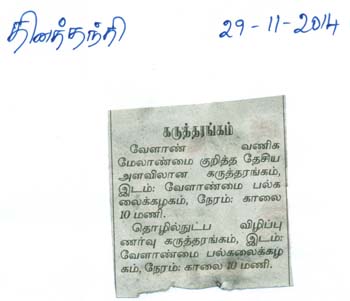 தினத்தந்தி 29-11-2014
கருத்தரங்கம்
வேளாண் வணிக
மேலாண்மை குறித்த தேசிய
அளவிலான கருத்தரங்கம்,
இடம்: வேளாண்மை பல்க
லைக்கழகம், நேரம்: காலை
10 மணி.
தொழில்நுட்ப விழிப்பு
ணர்வு கருத்தரங்கம், இடம்:
வேளாண்மை பல்கலைக்கழ
கம், நேரம்: காலை 10 மணி.